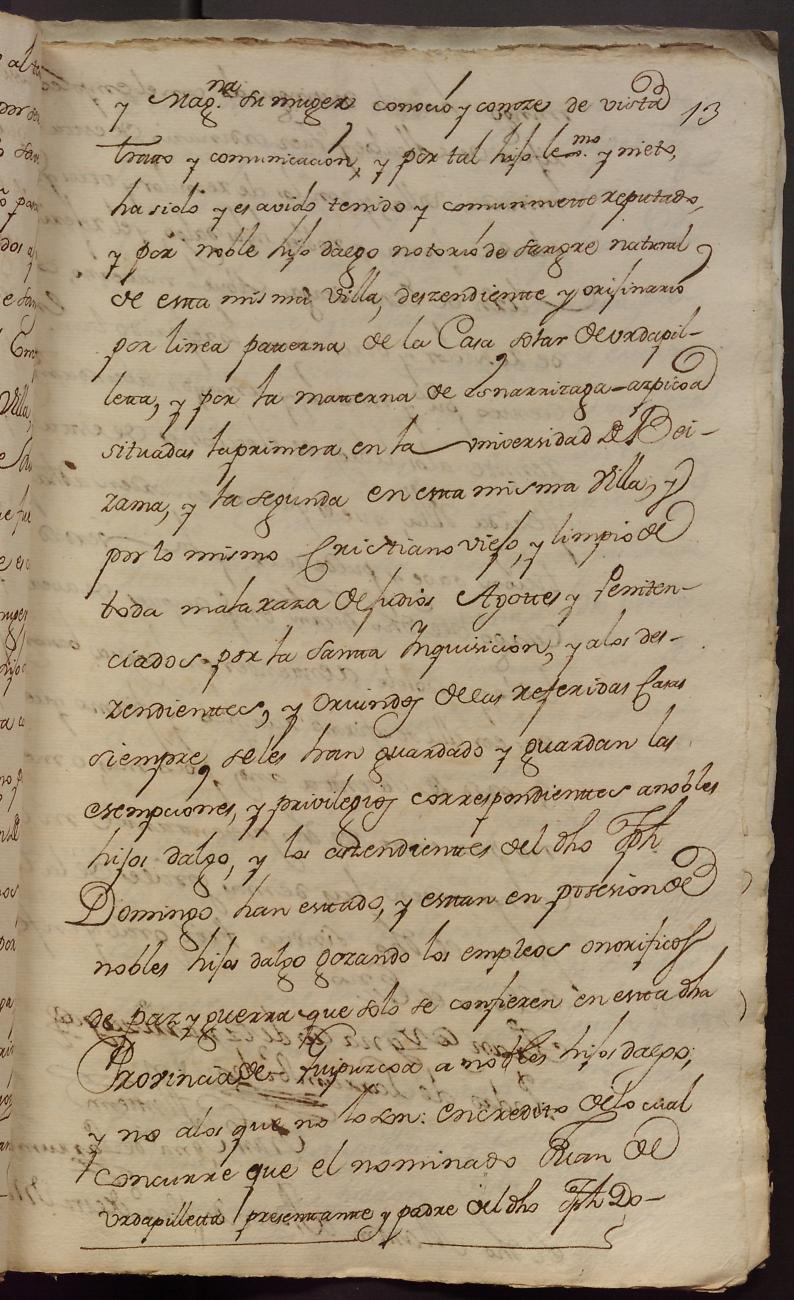 y Mag.na su muger conoció y conoze de vista 13
trato y comunicacion, y por tal hijo lexmo. y nieto,
ha sido y es avido tenido y comunmette reputado,
y por noble hijo dalgo notorio de sangre natural
de estta misma Villa, deszendientte y orijinario
por linea patterna de la Casa solar de Urdapil-
letta, y por la matterna de Esnarrizaga-azpicoa
situadas la primera en la universidad de Bei-
zama, y la segunda en estta misma Villa, y
por lo mismo Cristiano viejo, y limpio de
toda mala raza de judios Agottes y Peniten-
ciados por la Santta Ynquisicion, y a los des-
zendienttes, y oriundos de las referidas Casas
siempre se les han guardado y guardan las
esempciones, y privilegios correspondienttes a nobles
hijos dalgo, y los aszendienttes del dho Jph
Domingo han esttado, y esttan en posesion de
nobles hijos dalgo gozando los empleos onorificos
de paz y guerra que solo se confieren en estta dha
Provincia de Guipuzcoa a nobles hijos dalgo,
y no a los que no lo son: en credito de lo cual
concurre que el nominado Juan de
Urdapilletta presenttante y padre del dho Jph Do-